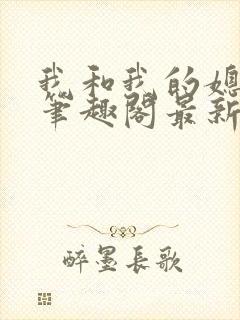 我和我的媳
笔趣阁最新
醉墨长歌